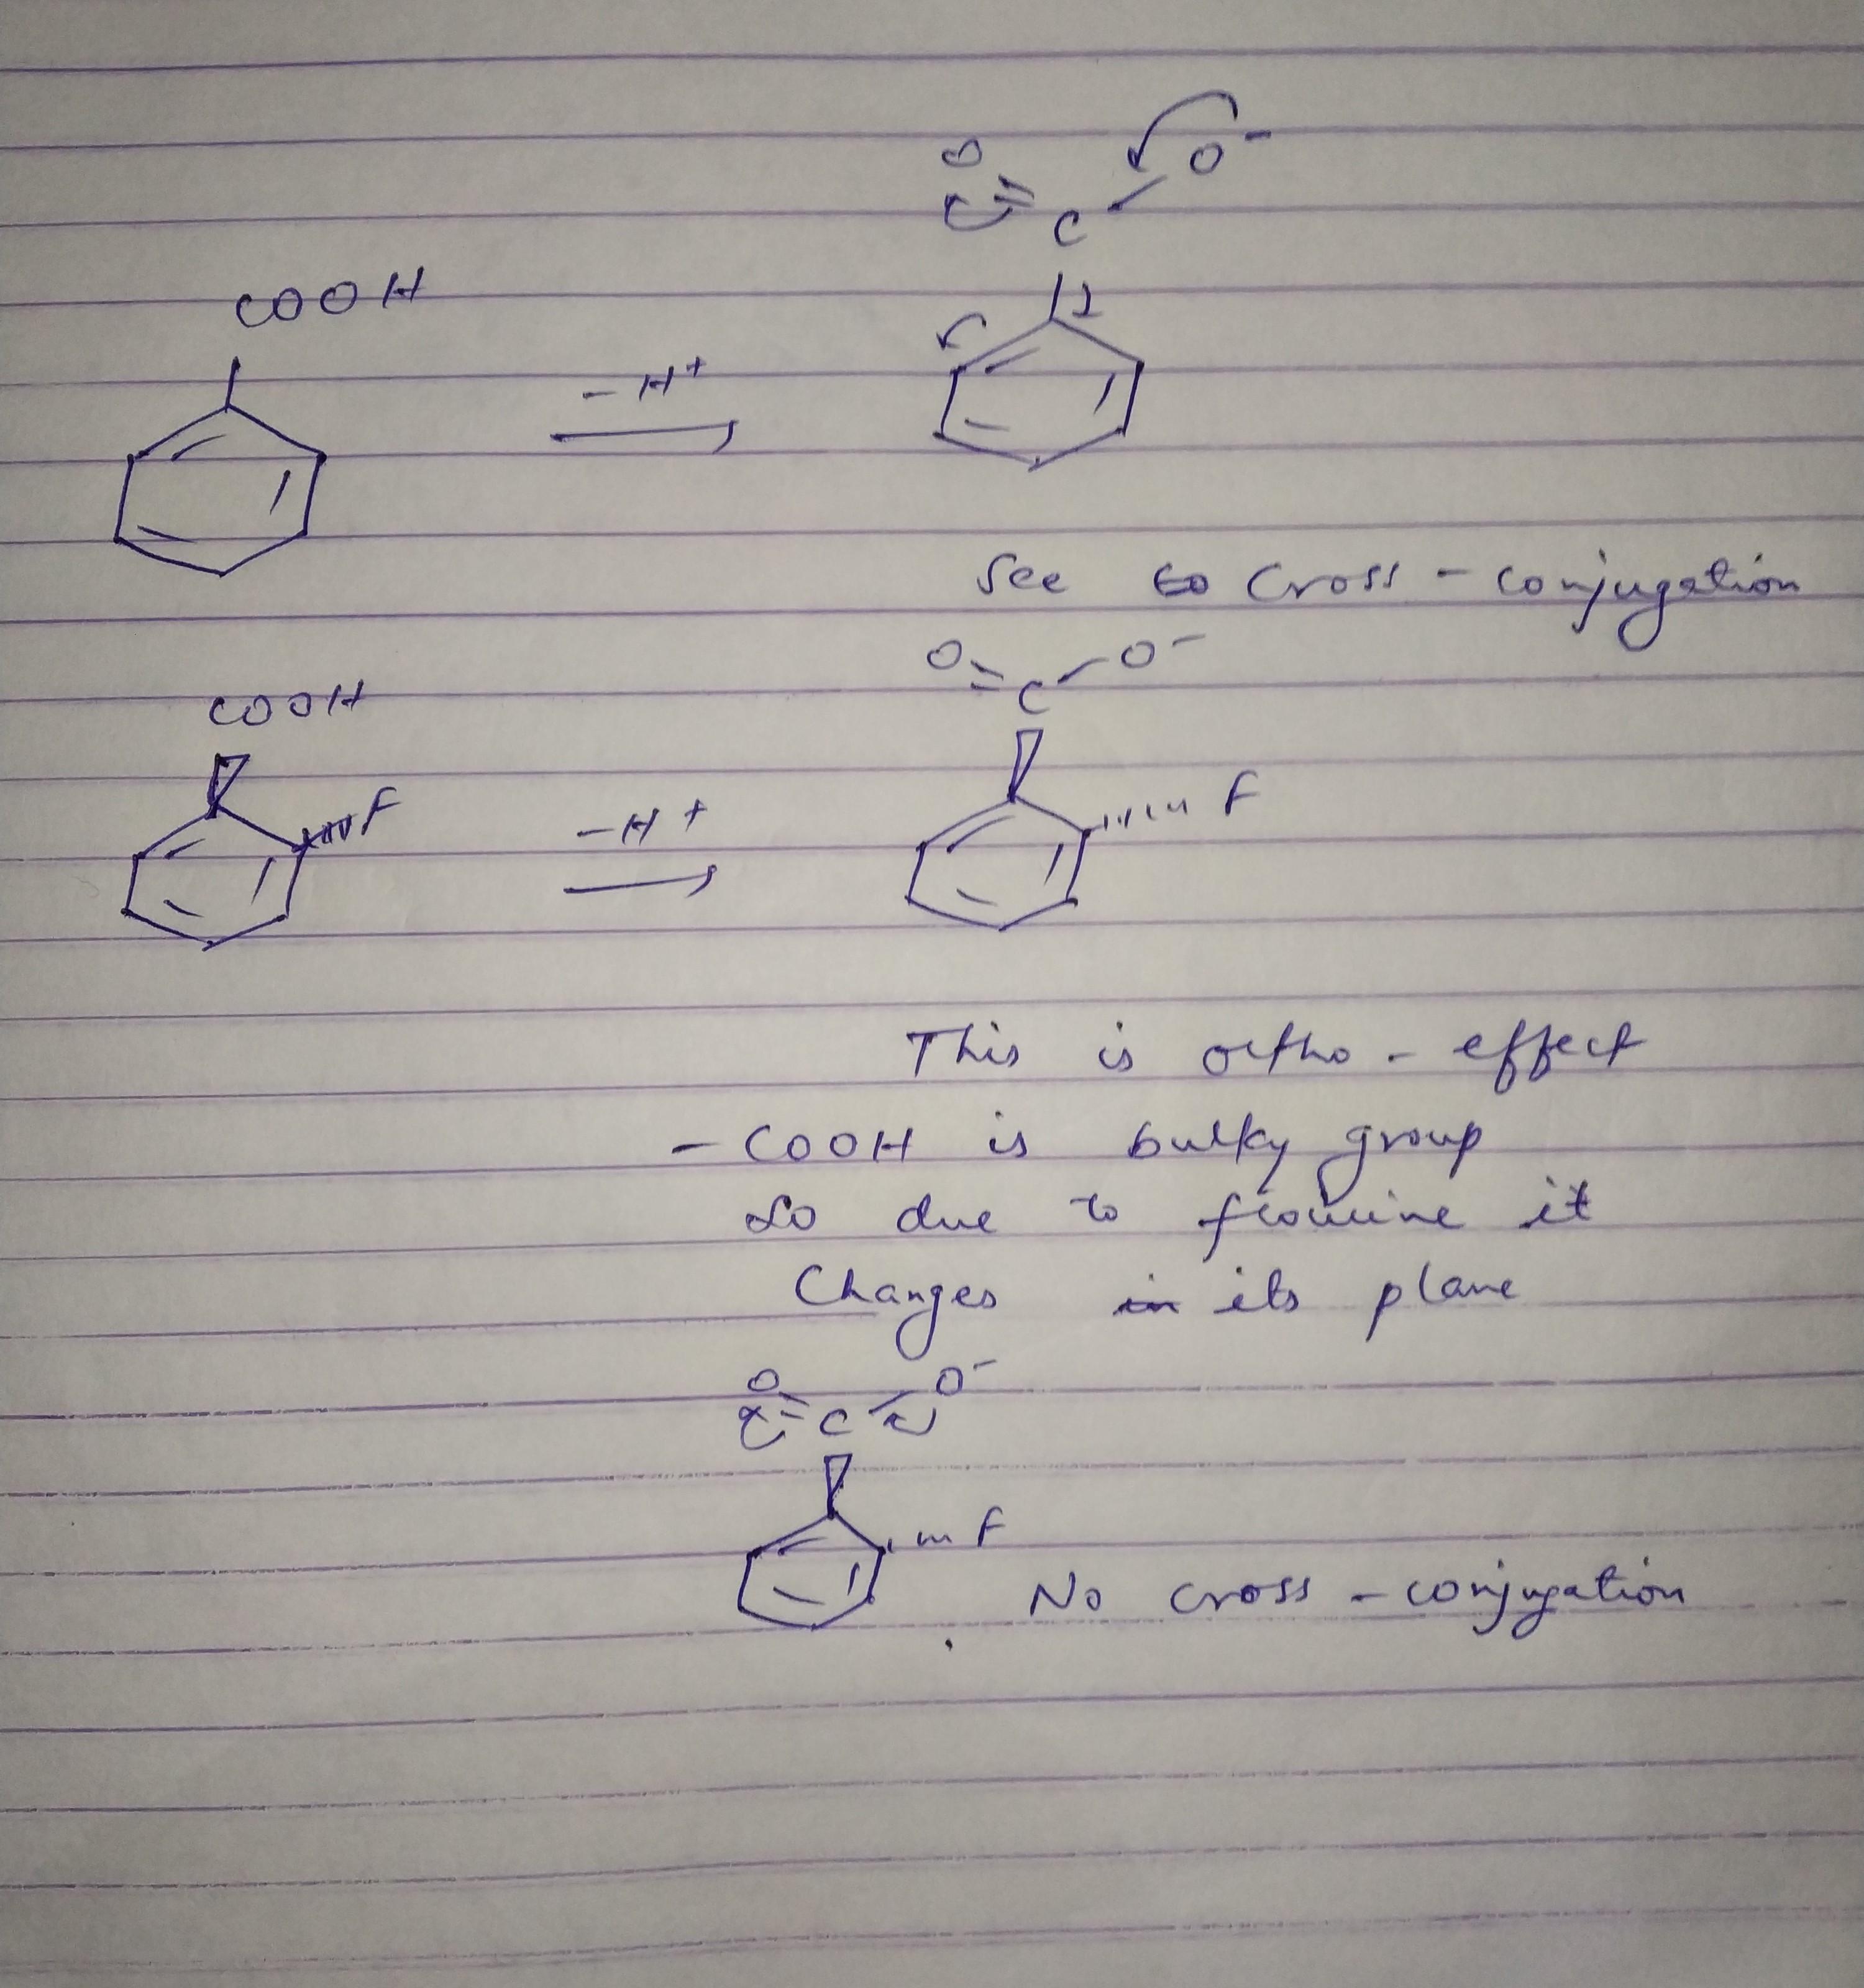 O
C
O-
COOH
-H+
See to Cross-conjugation
O
C
O-
COOH
F
-H+
F
This is ortho-effect
- COOH is bulky group
so due to it
Changes in its plane
O
C
O-
F
No cross-conjugation